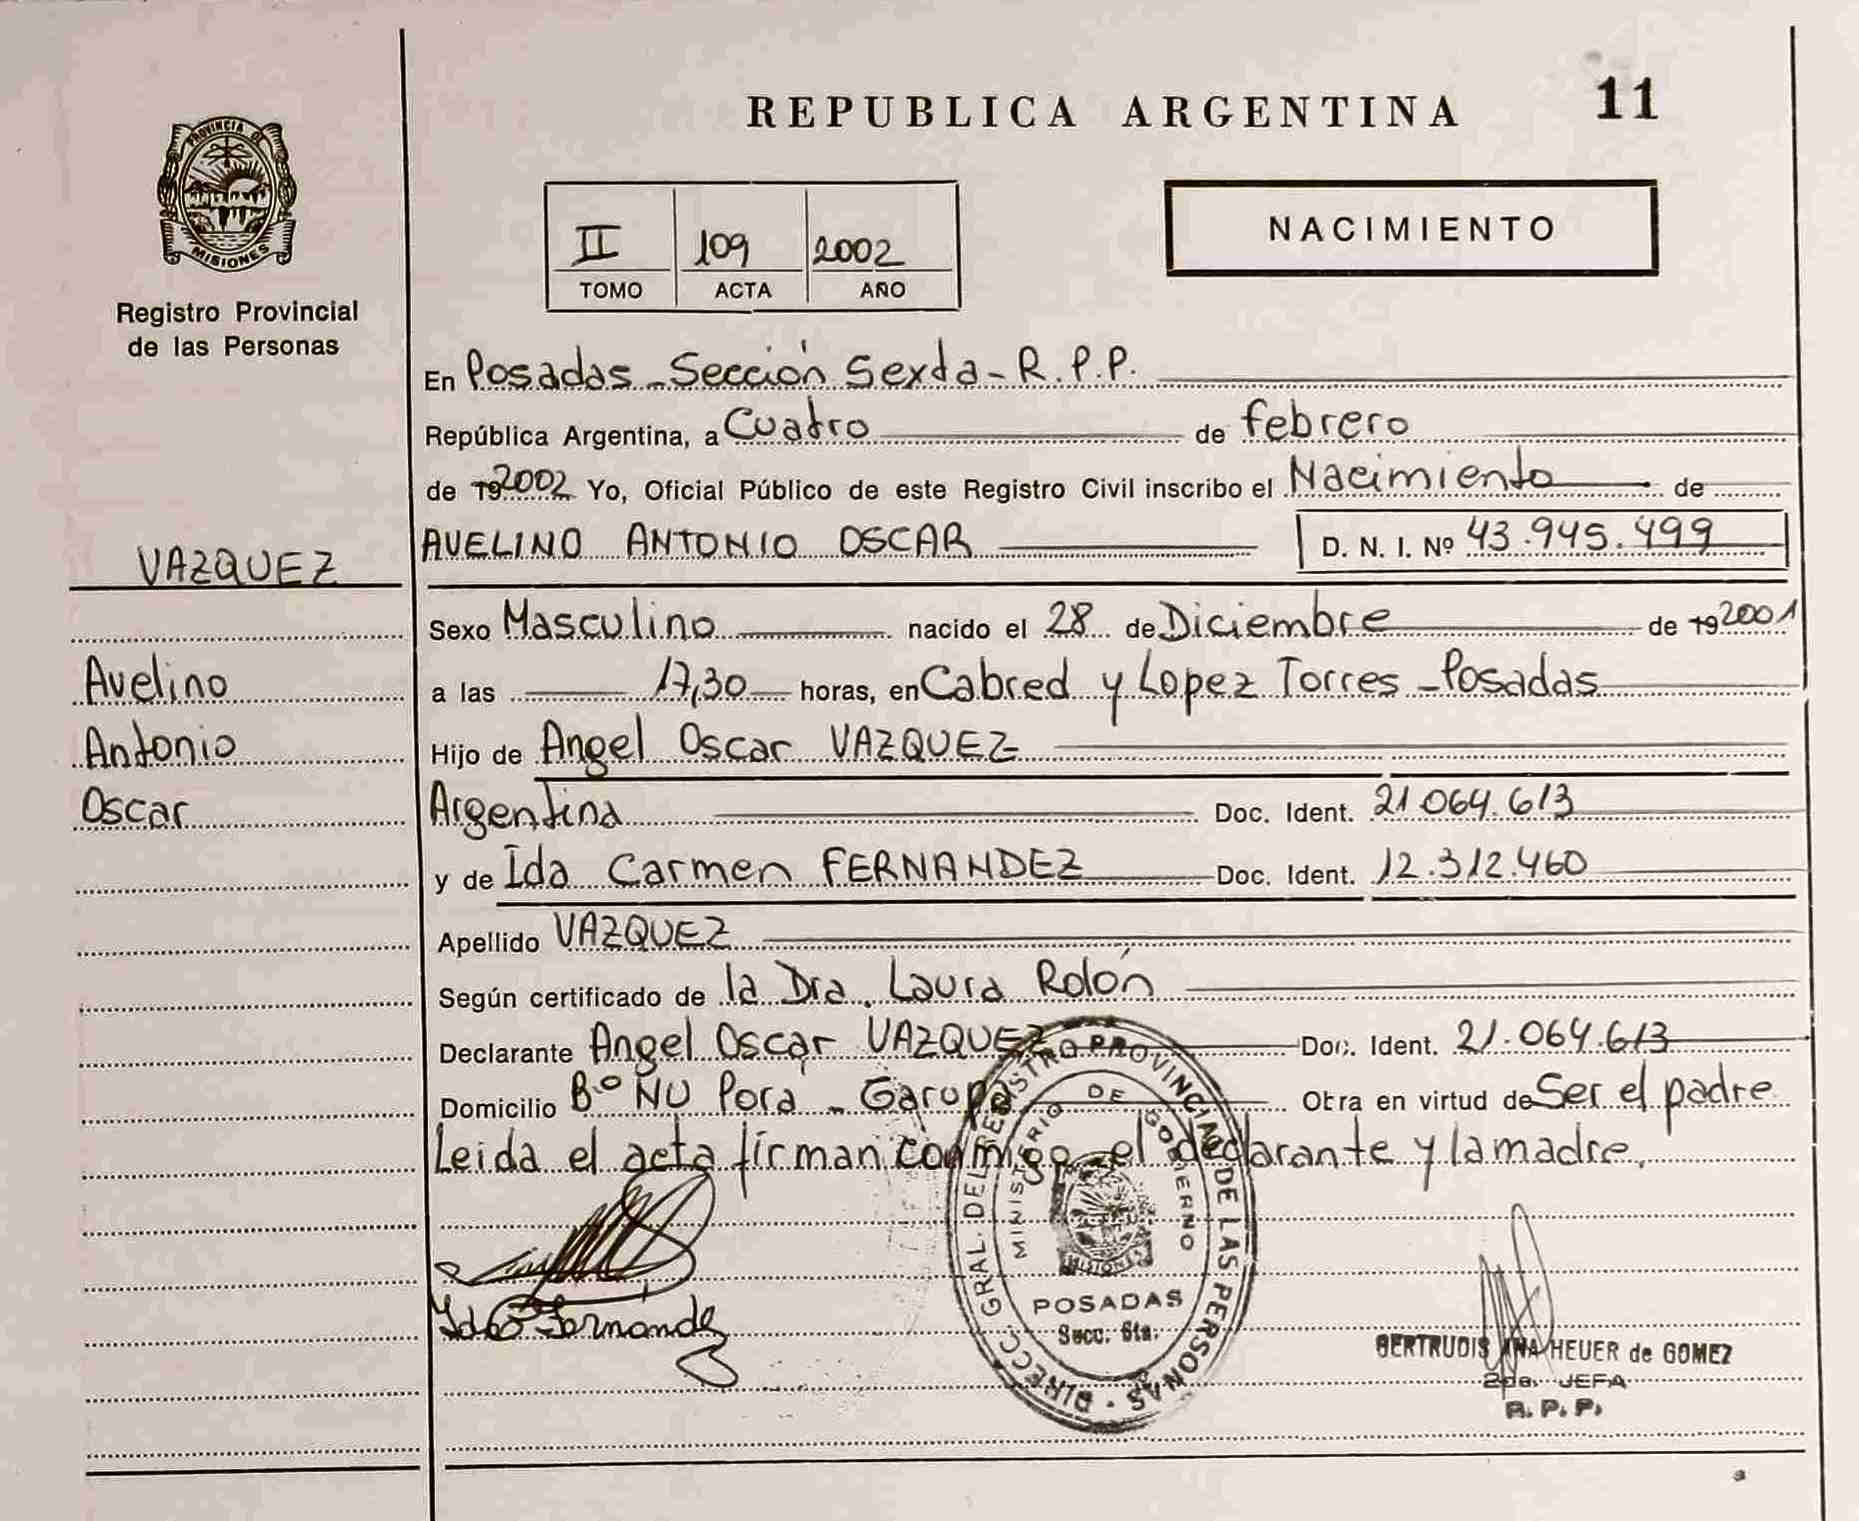 REPUBLICA ARGENTINA 11
PROVINCIA DE
MISIONES
Registro Provincial
de las Personas
NACIMIENTO
II 109 2002
TOMO ACTA AÑO
En Posadas - Sección Sexta - R.P.P.
República Argentina, a Cuatro de febrero
de 19 2002 Yo, Oficial Público de este Registro Civil inscribo el Nacimiento de
VAZQUEZ
AVELINO ANTONIO OSCAR D. N. I. Nº 43.945.499
Sexo Masculino nacido el 28 de Diciembre de 19 2001
Avelino
a las 17,30 horas, en Cabred y Lopez Torres - Posadas
Antonio
Hijo de Angel Oscar VAZQUEZ
Oscar
Argentina Doc. Ident. 21.064.613
y de Ida Carmen FERNANDEZ Doc. Ident. 12.312.460
Apellido VAZQUEZ
Según certificado de la Dra. Laura Rolón
Declarante Angel Oscar VAZQUEZ Doc. Ident. 21.064.613
Domicilio Bº ÑU Porá - Garupá Obra en virtud de Ser el padre
Leida el acta firman conmigo el declarante y la madre.
DIRECC. GRAL. DEL REGISTRO PROVINCIAL DE LAS PERSONAS
MINISTERIO DE GOBIERNO
MISIONES
POSADAS
Secc. 6ta.
Fernandez
GERTRUDIS ANA HEUER de GOMEZ
2da. JEFA
R. P. P.